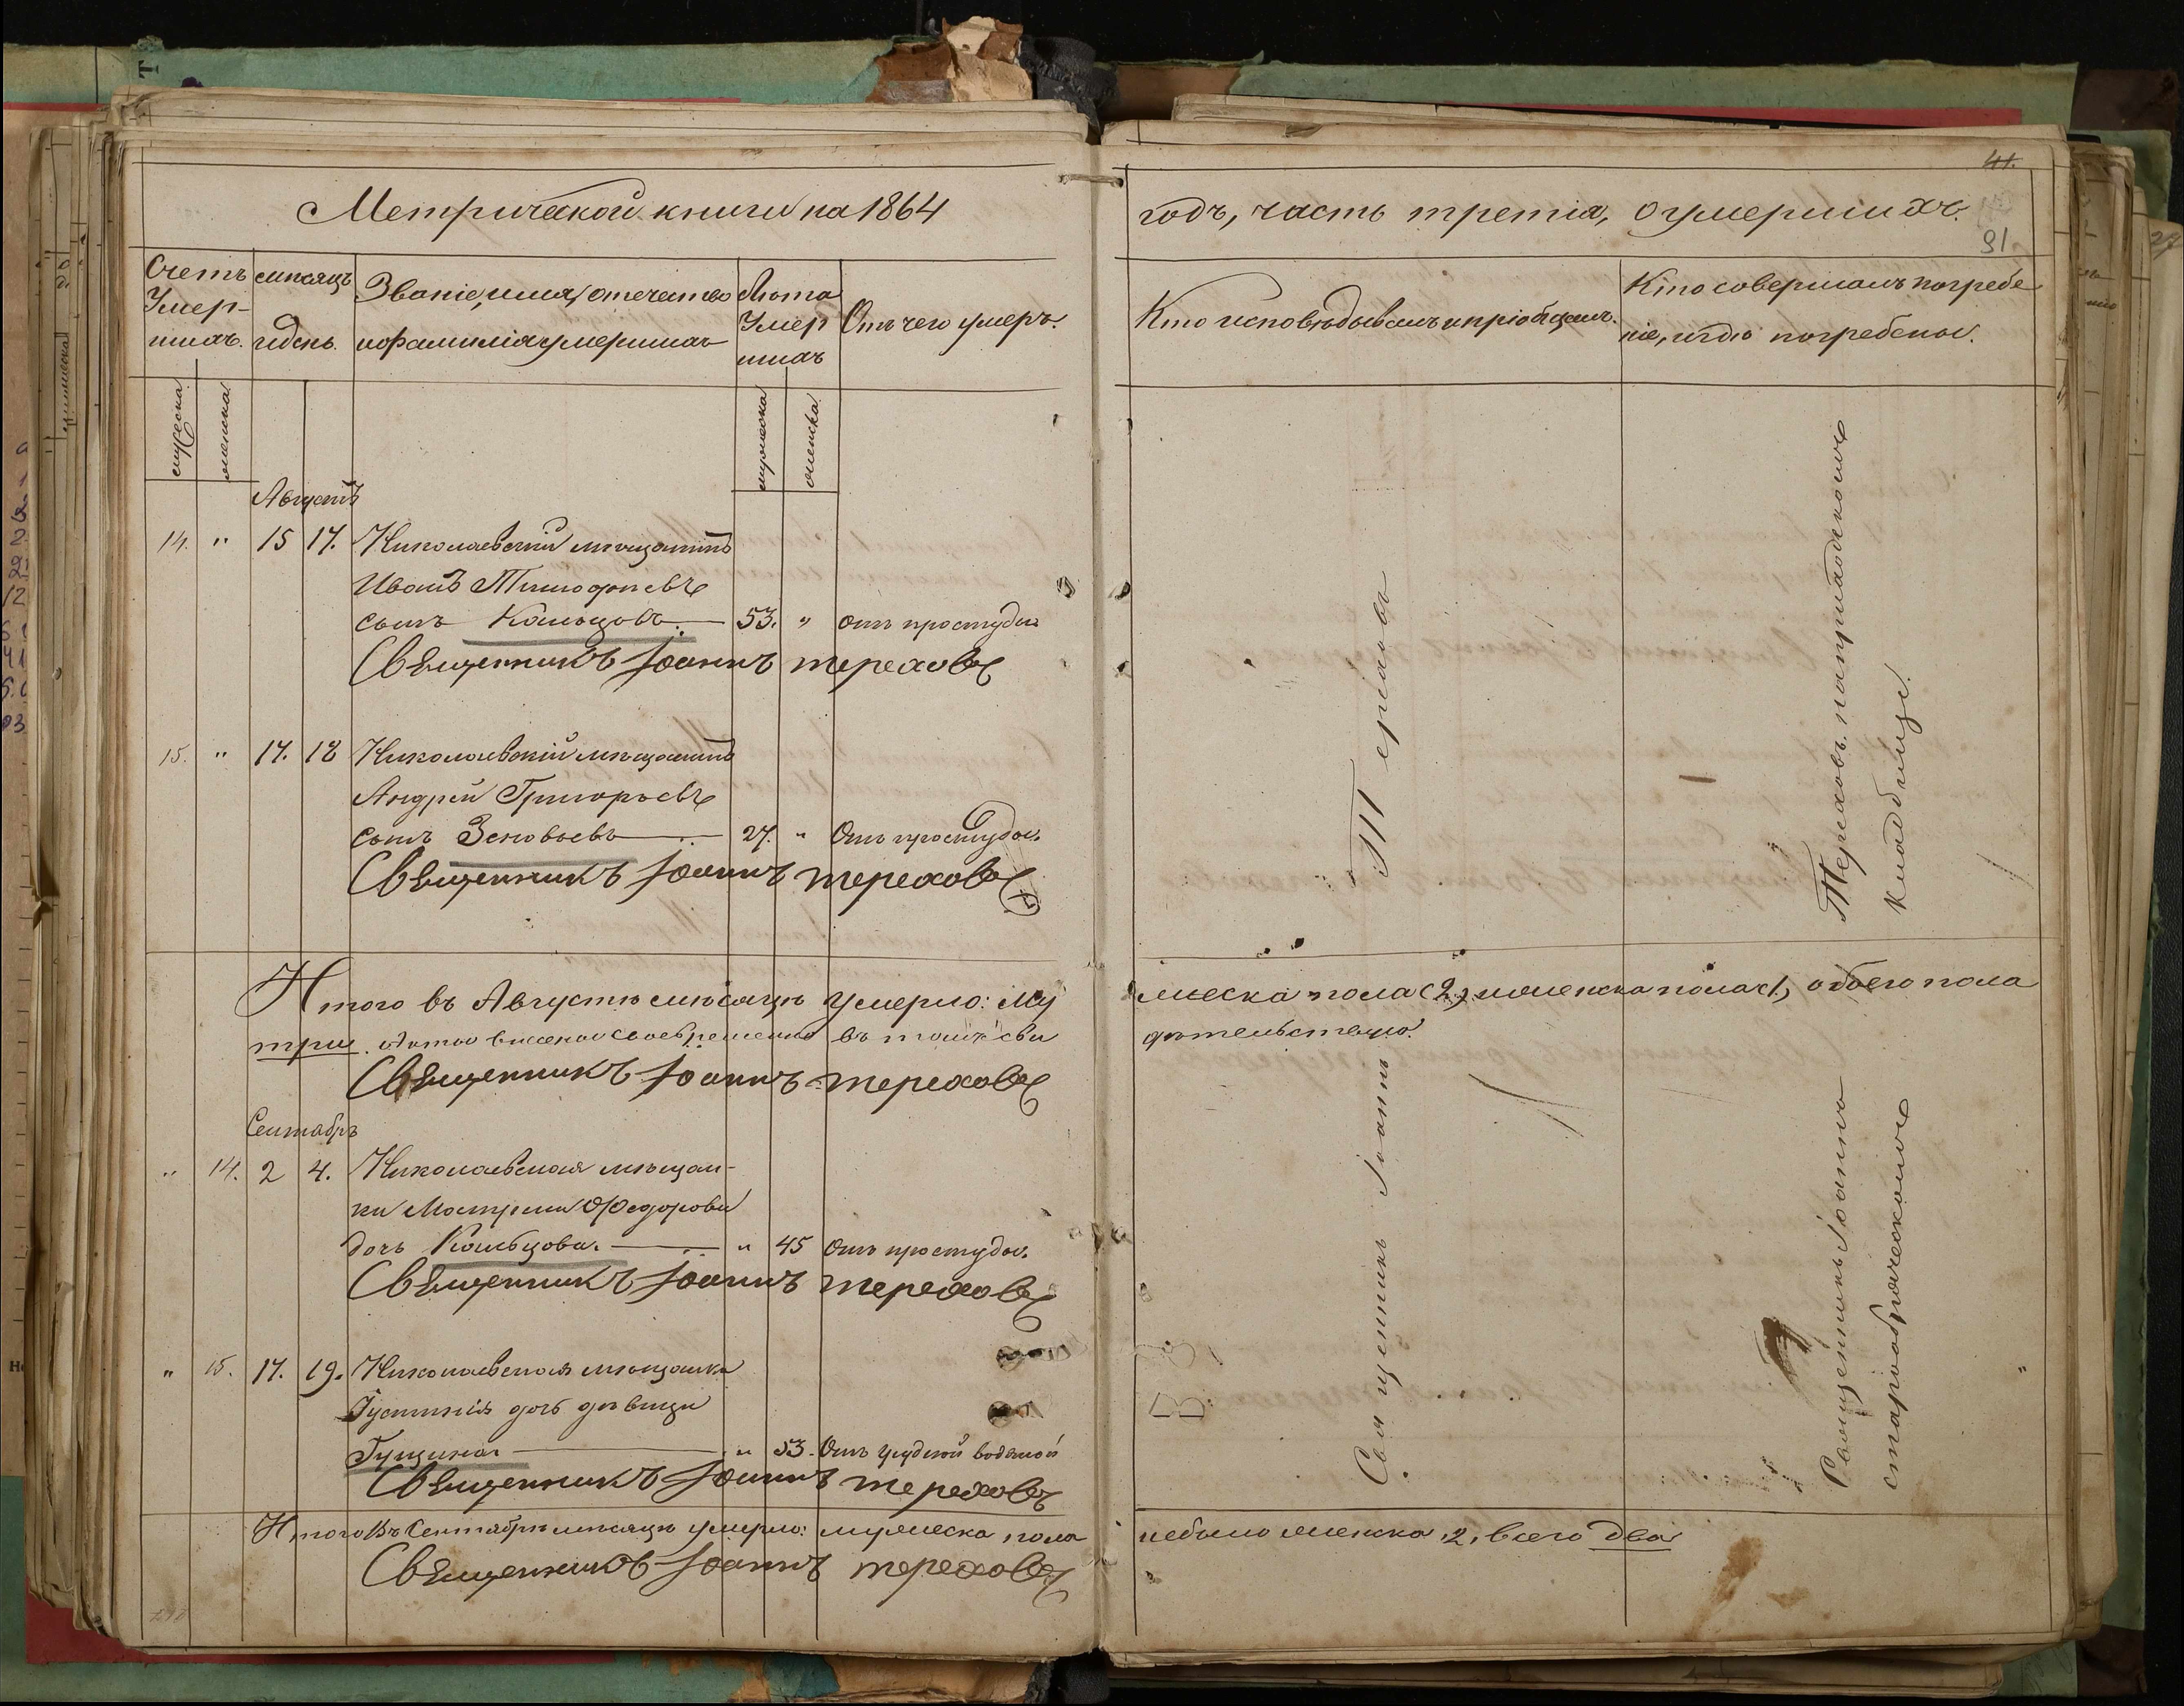 Метрической книги на 1864
Счетъ Умер- шихъ.
месяцъ и день.
Званіе, имя, отечество и фамилія умершихъ
Лѣта Умер шихъ
Отъ чего умеръ.
мужеска
женска
мужеска
женска
Августъ
14. " 15 17. Николаевскій мѣщанинъ
Иванъ Тимофѣевъ
сынъ Кальцовъ. 53. " отъ простуды
Священникъ Іоаннъ Тереховъ
15. " 17. 18 Николаевскій мѣщанинъ
Андрей Григорьевъ
сынъ Зеновьевъ 27. " Отъ простуды.
Священникъ Іоаннъ Тереховъ
Итого въ Августѣ мѣсяцѣ умерло: му
три. въ томъ сви
Священникъ Іоаннъ Тереховъ
Сентябрь
" 14. 2 4. Николаевская мѣщан-
ки Матрени Федорова
дочь Кальцова. " 45 Отъ простуды.
Священникъ Іоаннъ Тереховъ
" 15. 17. 19. Николаевская мѣщанка
дочь девица
Гущина " 53. Отъ грудной водяной
Священникъ Іоаннъ Тереховъ
Итого Въ Сентябрѣ мѣсяцѣ умерло: мужеска пола
Священникъ Іоаннъ Тереховъ
41.
91
годъ, часть третія, о умершихъ.
Кто исповѣдывалъ и пріобщалъ.
Кто совершалъ погребе
ніе, и гдѣ погребены.
Священникъ Іоаннъ Тереховъ
Священникъ Іоаннъ Тереховъ. на приходскомъ
старообрядческомъ кладбище.
жеска пола (2) женска пола (1), обоего пола
дѣтельствую.
небыло женска 2, всего два